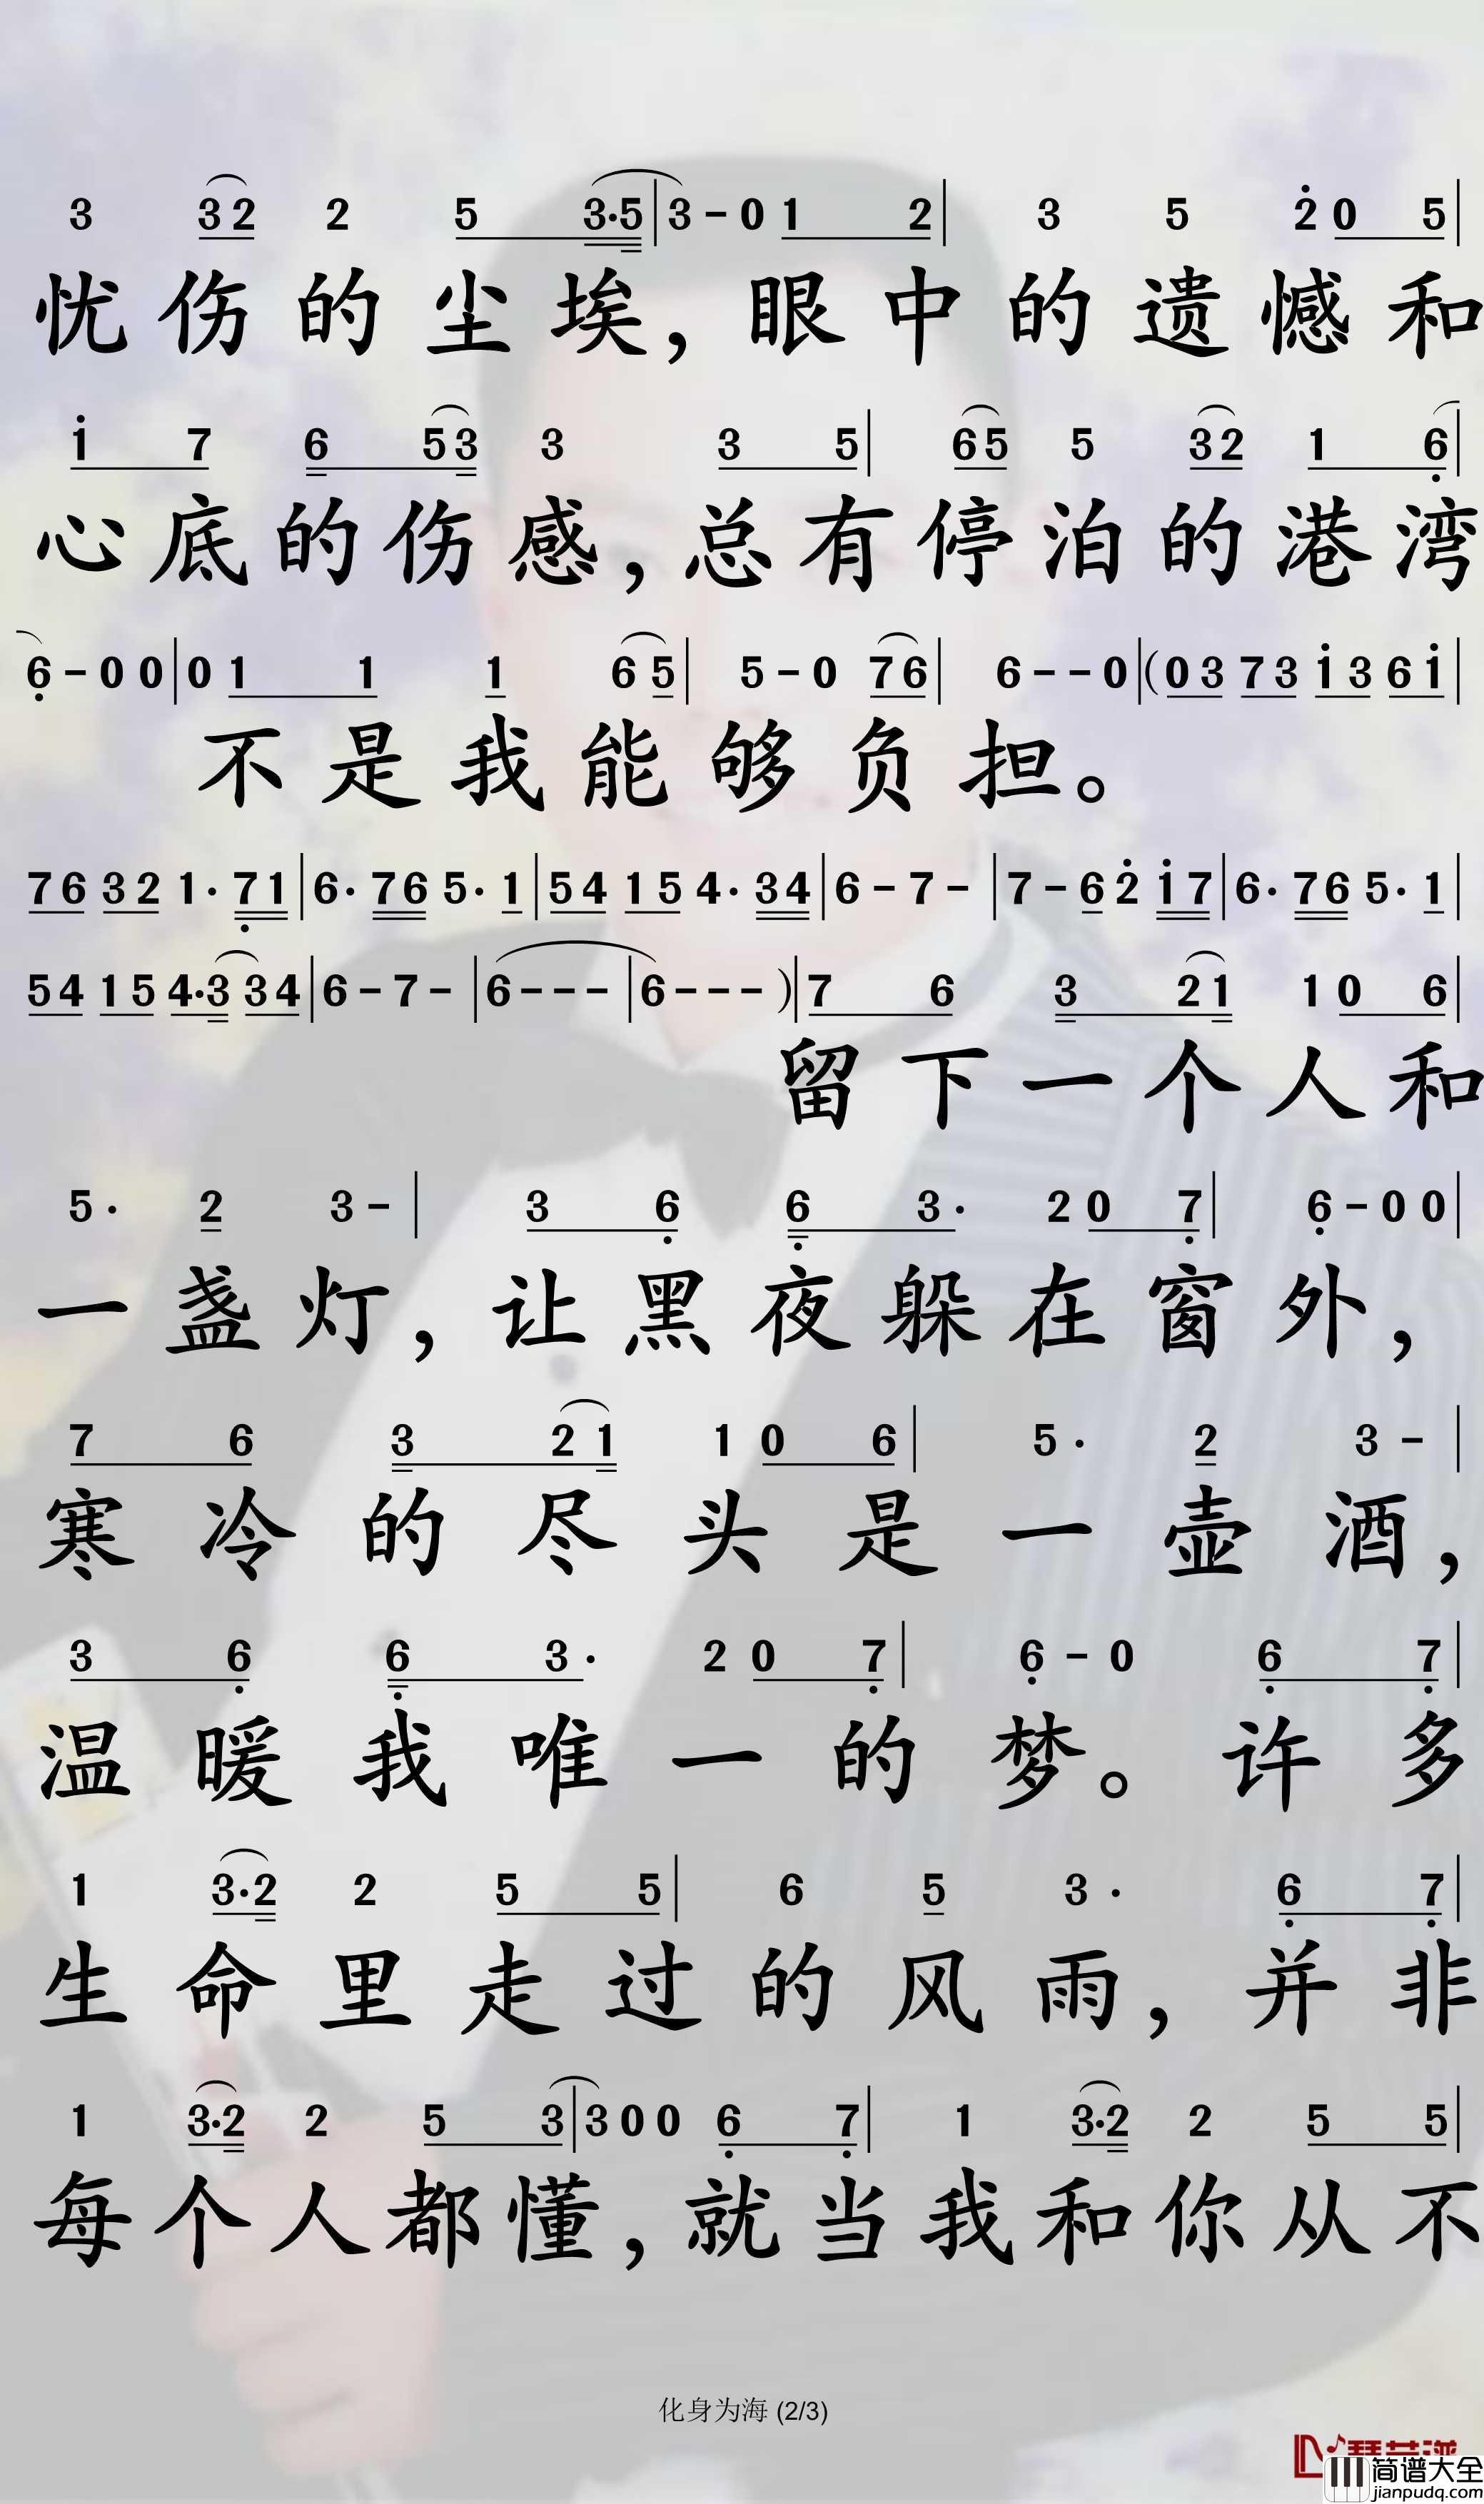 3 32 2 5 3·5|3-0 1 2| 3 5 2̇ 0 5|
忧伤的尘埃，眼中的遗憾和
1̇ 7 6 53 3 3 5| 65 5 32 1 6̣|
心底的伤感，总有停泊的港湾
6̣-00|0 1 1 1 65| 5-0 76| 6--0|(03 73 1̇3 61̇|
不是我能够负担。
76 32 1· 7̣1|6· 76 5· 1|54 15 4· 34|6-7-|7-6 2̇ 1̇7|6· 76 5· 1|
54 15 4·3 34|6-7-|6---|6---)|7 6 3 21 1 0 6|
留下一个人和
5· 2 3-| 3 6̣ 6̣ 3· 2 0 7̣| 6̣-00|
一盏灯，让黑夜躲在窗外，
7 6 3 21 1 0 6| 5· 2 3-|
寒冷的尽头是一壶酒，
3 6̣ 6̣ 3· 2 0 7̣| 6̣-0 6̣ 7̣|
温暖我唯一的梦。许多
1 3·2 2 5 5| 6 5 3· 6̣ 7̣|
生命里走过的风雨，并非
1 3·2 2 5 3|300 6̣ 7̣| 1 3·2 2 5 5|
每个人都懂，就当我和你从不
化身为海 (2/3)
简谱大全
jianpudq.com